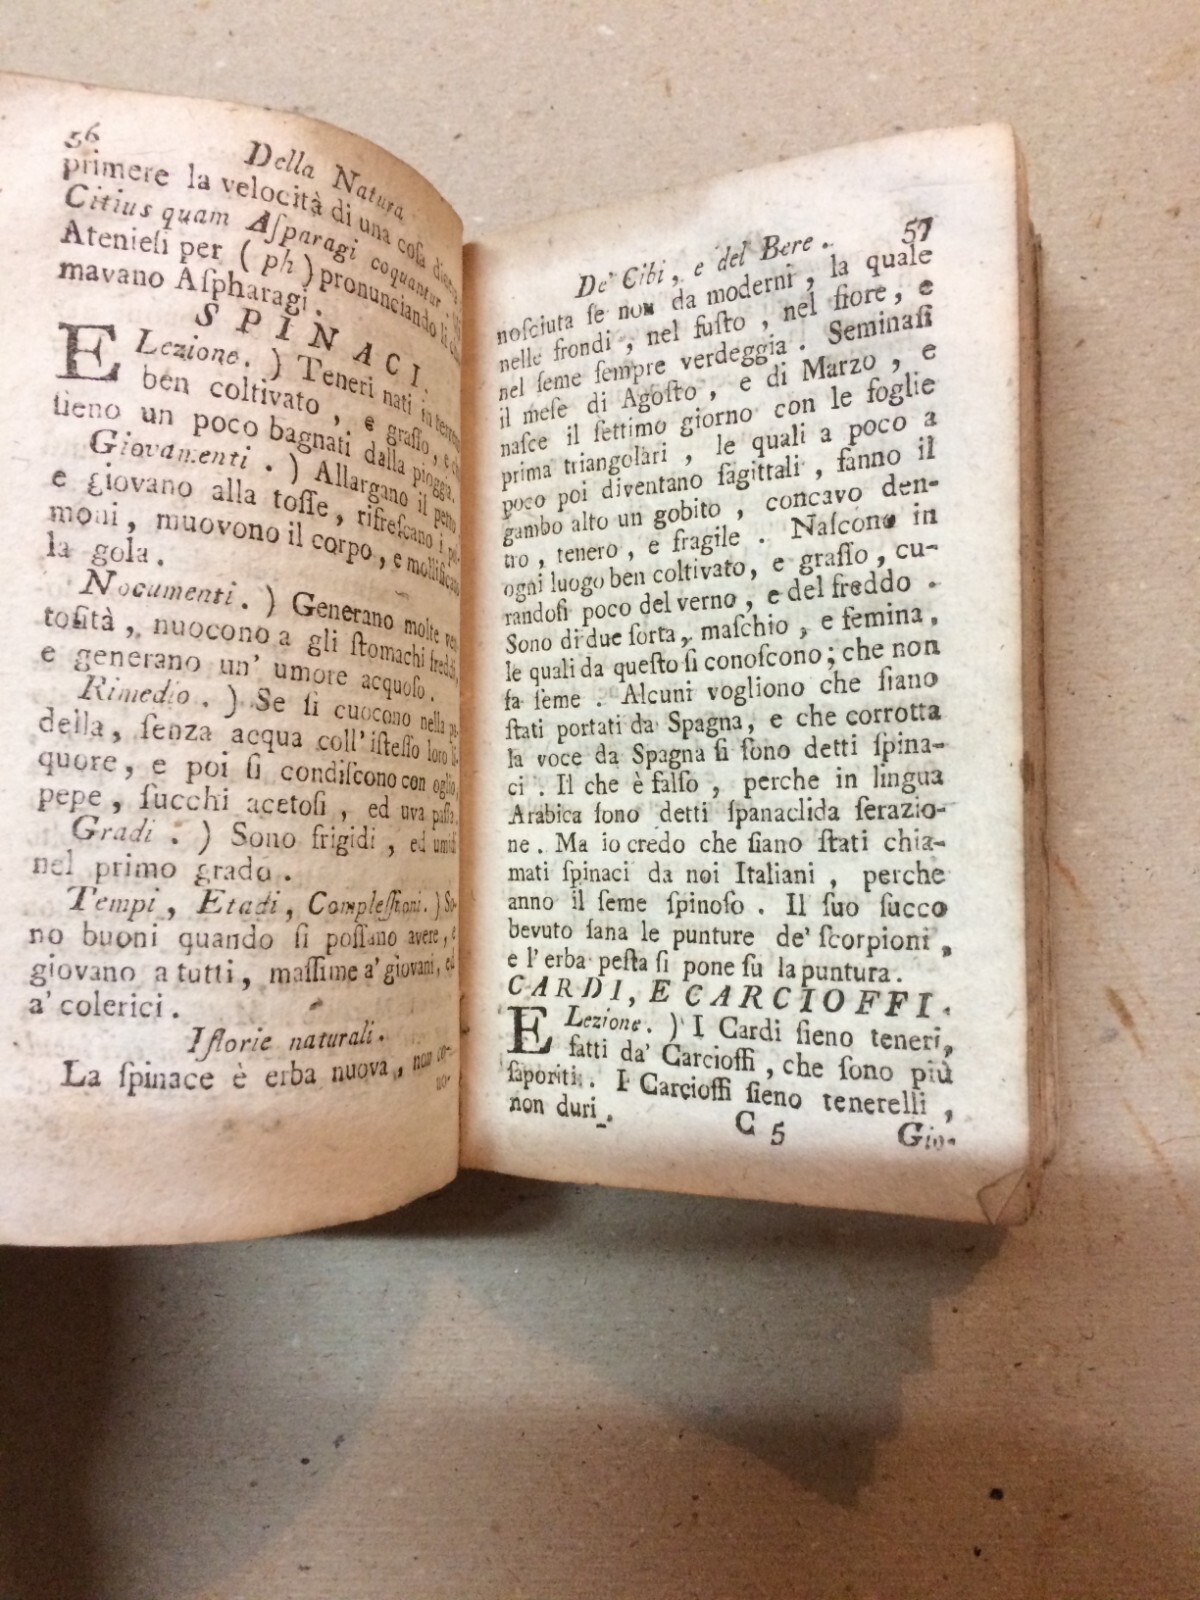 56
Della Natura
primere la velocità di una coſa
Citius quam Aſparagi coquantur.
Atenieſi per (ph) pronunciando li
mavano Aſpharagi.
SPINACI.
ELezione.) Teneri nati in
ben coltivato, e graſſo, e
ſieno un poco bagnati dalla pioggia.
Giovamenti.) Allargano il petto
e giovano alla toſſe, rifreſcano i pol-
moni, muovono il corpo, e mollificano
la gola.
Nocumenti.) Generano molte ven-
toſità, nuocono a gli ſtomachi freddi,
e generano un' umore acquoſo.
Rimedio.) Se ſi cuocono nella pa-
della, ſenza acqua coll'iſteſſo loro li-
quore, e poi ſi condiſcono con oglio,
pepe, ſucchi acetoſi, ed uva paſſa.
Gradi.) Sono frigidi, ed umidi
nel primo grado.
Tempi, Etadi, Compleſſioni.) So-
no buoni quando ſi poſſano avere, e
giovano a tutti, maſſime a' giovani, ed
a' colerici.
Iſtorie naturali.
La ſpinace è erba nuova, non co-
no-
De' Cibi, e del Bere. 57
noſciuta ſe non da moderni, la quale
nelle frondi, nel fuſto, nel fiore, e
nel ſeme ſempre verdeggia. Seminaſi
il meſe di Agoſto, e di Marzo, e
naſce il ſettimo giorno con le foglie
prima triangolari, le quali a poco a
poco poi diventano ſagittali, fanno il
gambo alto un gobito, concavo den-
tro, tenero, e fragile. Naſcono in
ogni luogo ben coltivato, e graſſo, cu-
randoſi poco del verno, e del freddo.
Sono di due ſorta, maſchio, e femina,
le quali da queſto ſi conoſcono; che non
fa ſeme. Alcuni vogliono che ſiano
ſtati portati da Spagna, e che corrotta
la voce da Spagna ſi ſono detti ſpina-
ci. Il che è falſo, perche in lingua
Arabica ſono detti ſpanaclida ſerazio-
ne. Ma io credo che ſiano ſtati chia-
mati ſpinaci da noi Italiani, perche
anno il ſeme ſpinoſo. Il ſuo ſucco
bevuto ſana le punture de' ſcorpioni,
e l'erba peſta ſi pone ſu la puntura.
CARDI, E CARCIOFFI.
ELezione.) I Cardi ſieno teneri,
fatti da' Carcioffi, che ſono più
ſaporiti. I Carcioffi ſieno tenerelli,
non duri.
C 5 Gio-